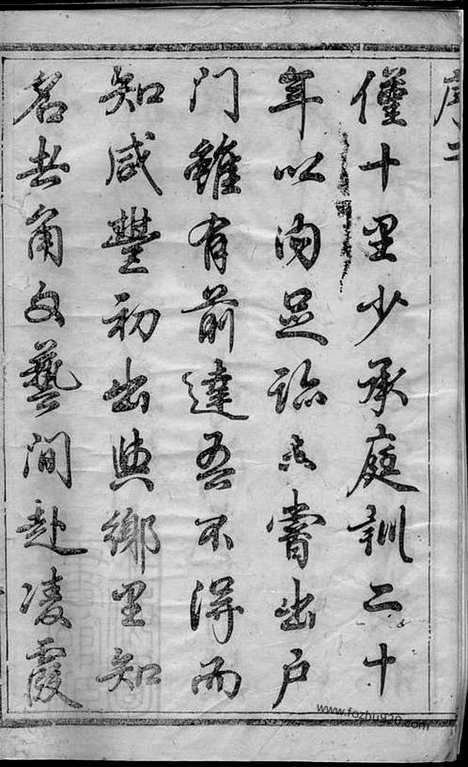 序二
僅十里少承庭訓二十
年以內足跡不嘗出户
門雖有前達吾不得而
知咸豐初出與鄉里知
名士角文藝間赴凌霞
www.fozhu920.com